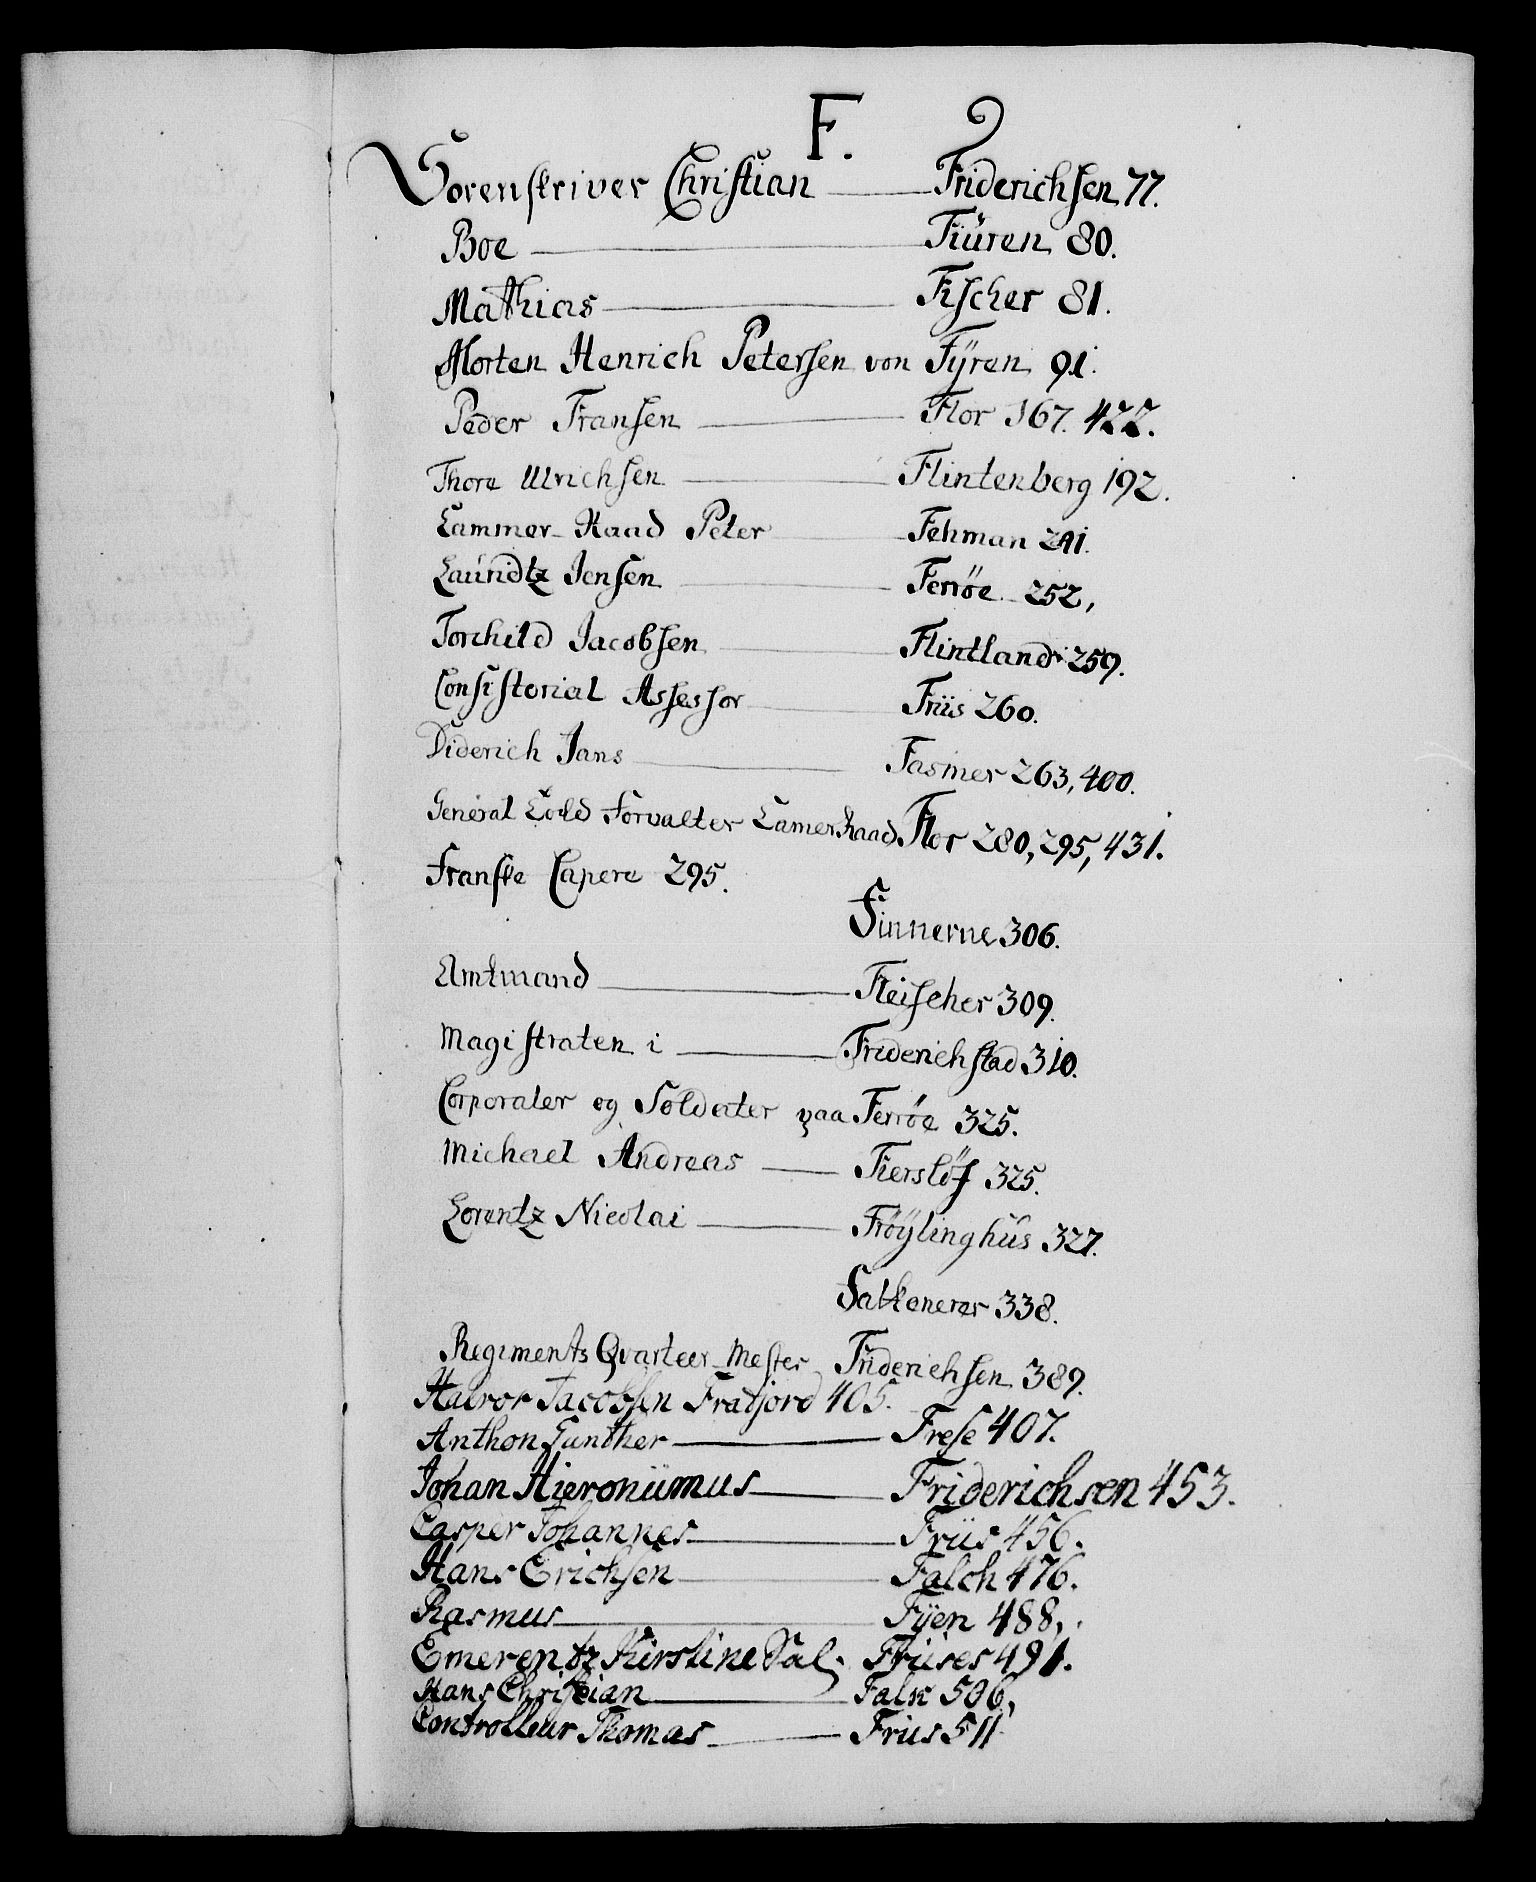 F.
Sorenskriver Christian Friderichsen 77.
Boe Fiüren 80.
Mathias Fischer 81.
Morten Henrich Petersen von Fÿren 91.
Peder Fransen Flor 167. 422.
Thore Ulrichsen Flintenberg 192.
Cammer-Raad Peter Fehman 241.
Lauridtz Jensen Ferröe 252,
Torchild Jacobsen Flintland 259.
Consistorial Assessor Friis 260.
Diderich Jans Fasmer 263, 400.
General Told Forvalter Camer Raad Flor 280, 295, 431.
Franske Capere 295.
Finnerne 306.
Amtmand Fleischer 309.
Magistraten i Friderichstad 310.
Corporaler og Soldater paa Ferröe 325.
Michael Andreas Fierslöf 325.
Lorentz Nicolai Fröÿlinghüs 327.
Falkenerer 338.
Regiments Qvarteer-Mester Friderichsen 389.
Halvor Jacobsen Frafjord 405.
Anthon Günther Frese 407.
Johan Hieronümus Friderichsen 453.
Casper Johannes Friis 456.
Hans Erichsen Falch 476.
Rasmus Fÿen 488,
Emerentz Kirstine Sal. Friises 491.
Hans Christian Falk 506,
Controlleur Thomas Friis 511